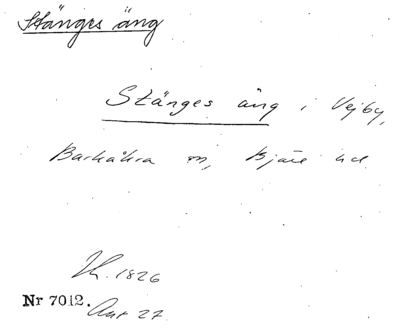 Stänges äng
Stänges äng i Vejby,
Barkåkra sn, Bjäre hd
Sk. 1826
Nr 7012.
Akt 27